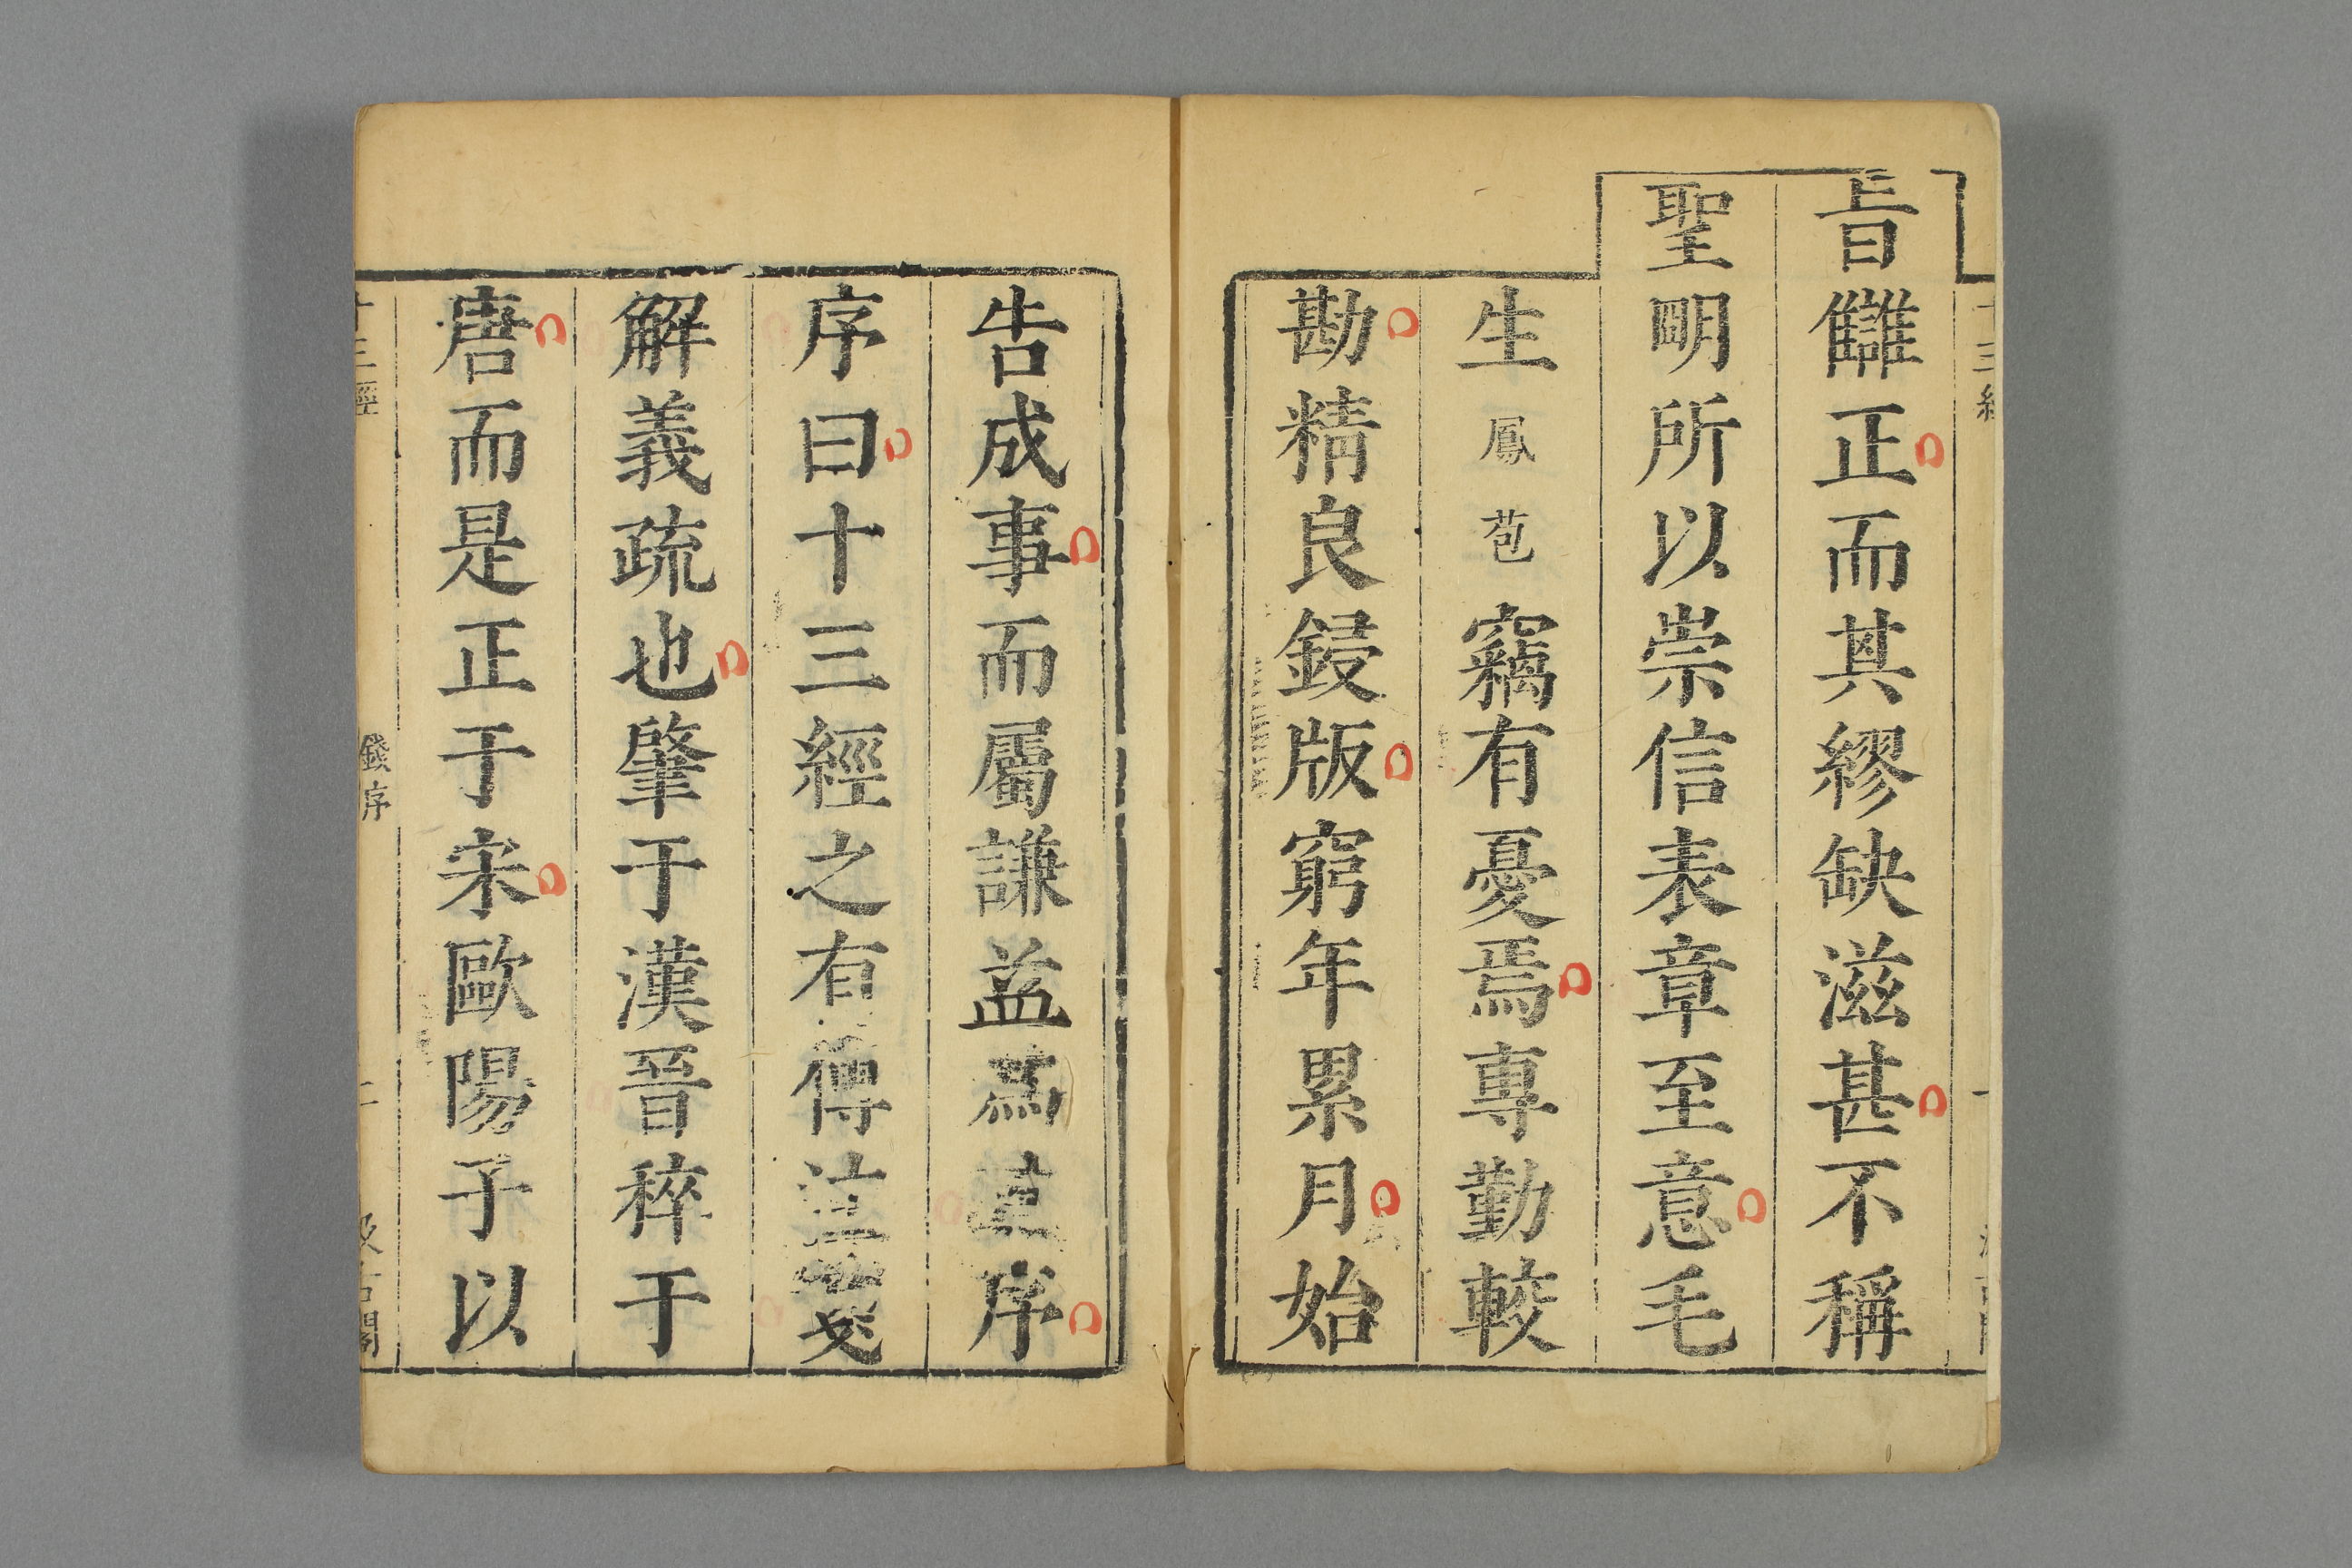 十三經
旨讎正而其繆缺滋甚不稱
聖明所以崇信表章至意毛
生鳳苞竊有憂焉專勤較
勘精良鋟版窮年累月始
告成事而屬謙益為其序
序曰十三經之有傳注箋
解義疏也肇于漢晉稡于
唐而是正于宋歐陽子以
十三經 錢序 二 汲古閣